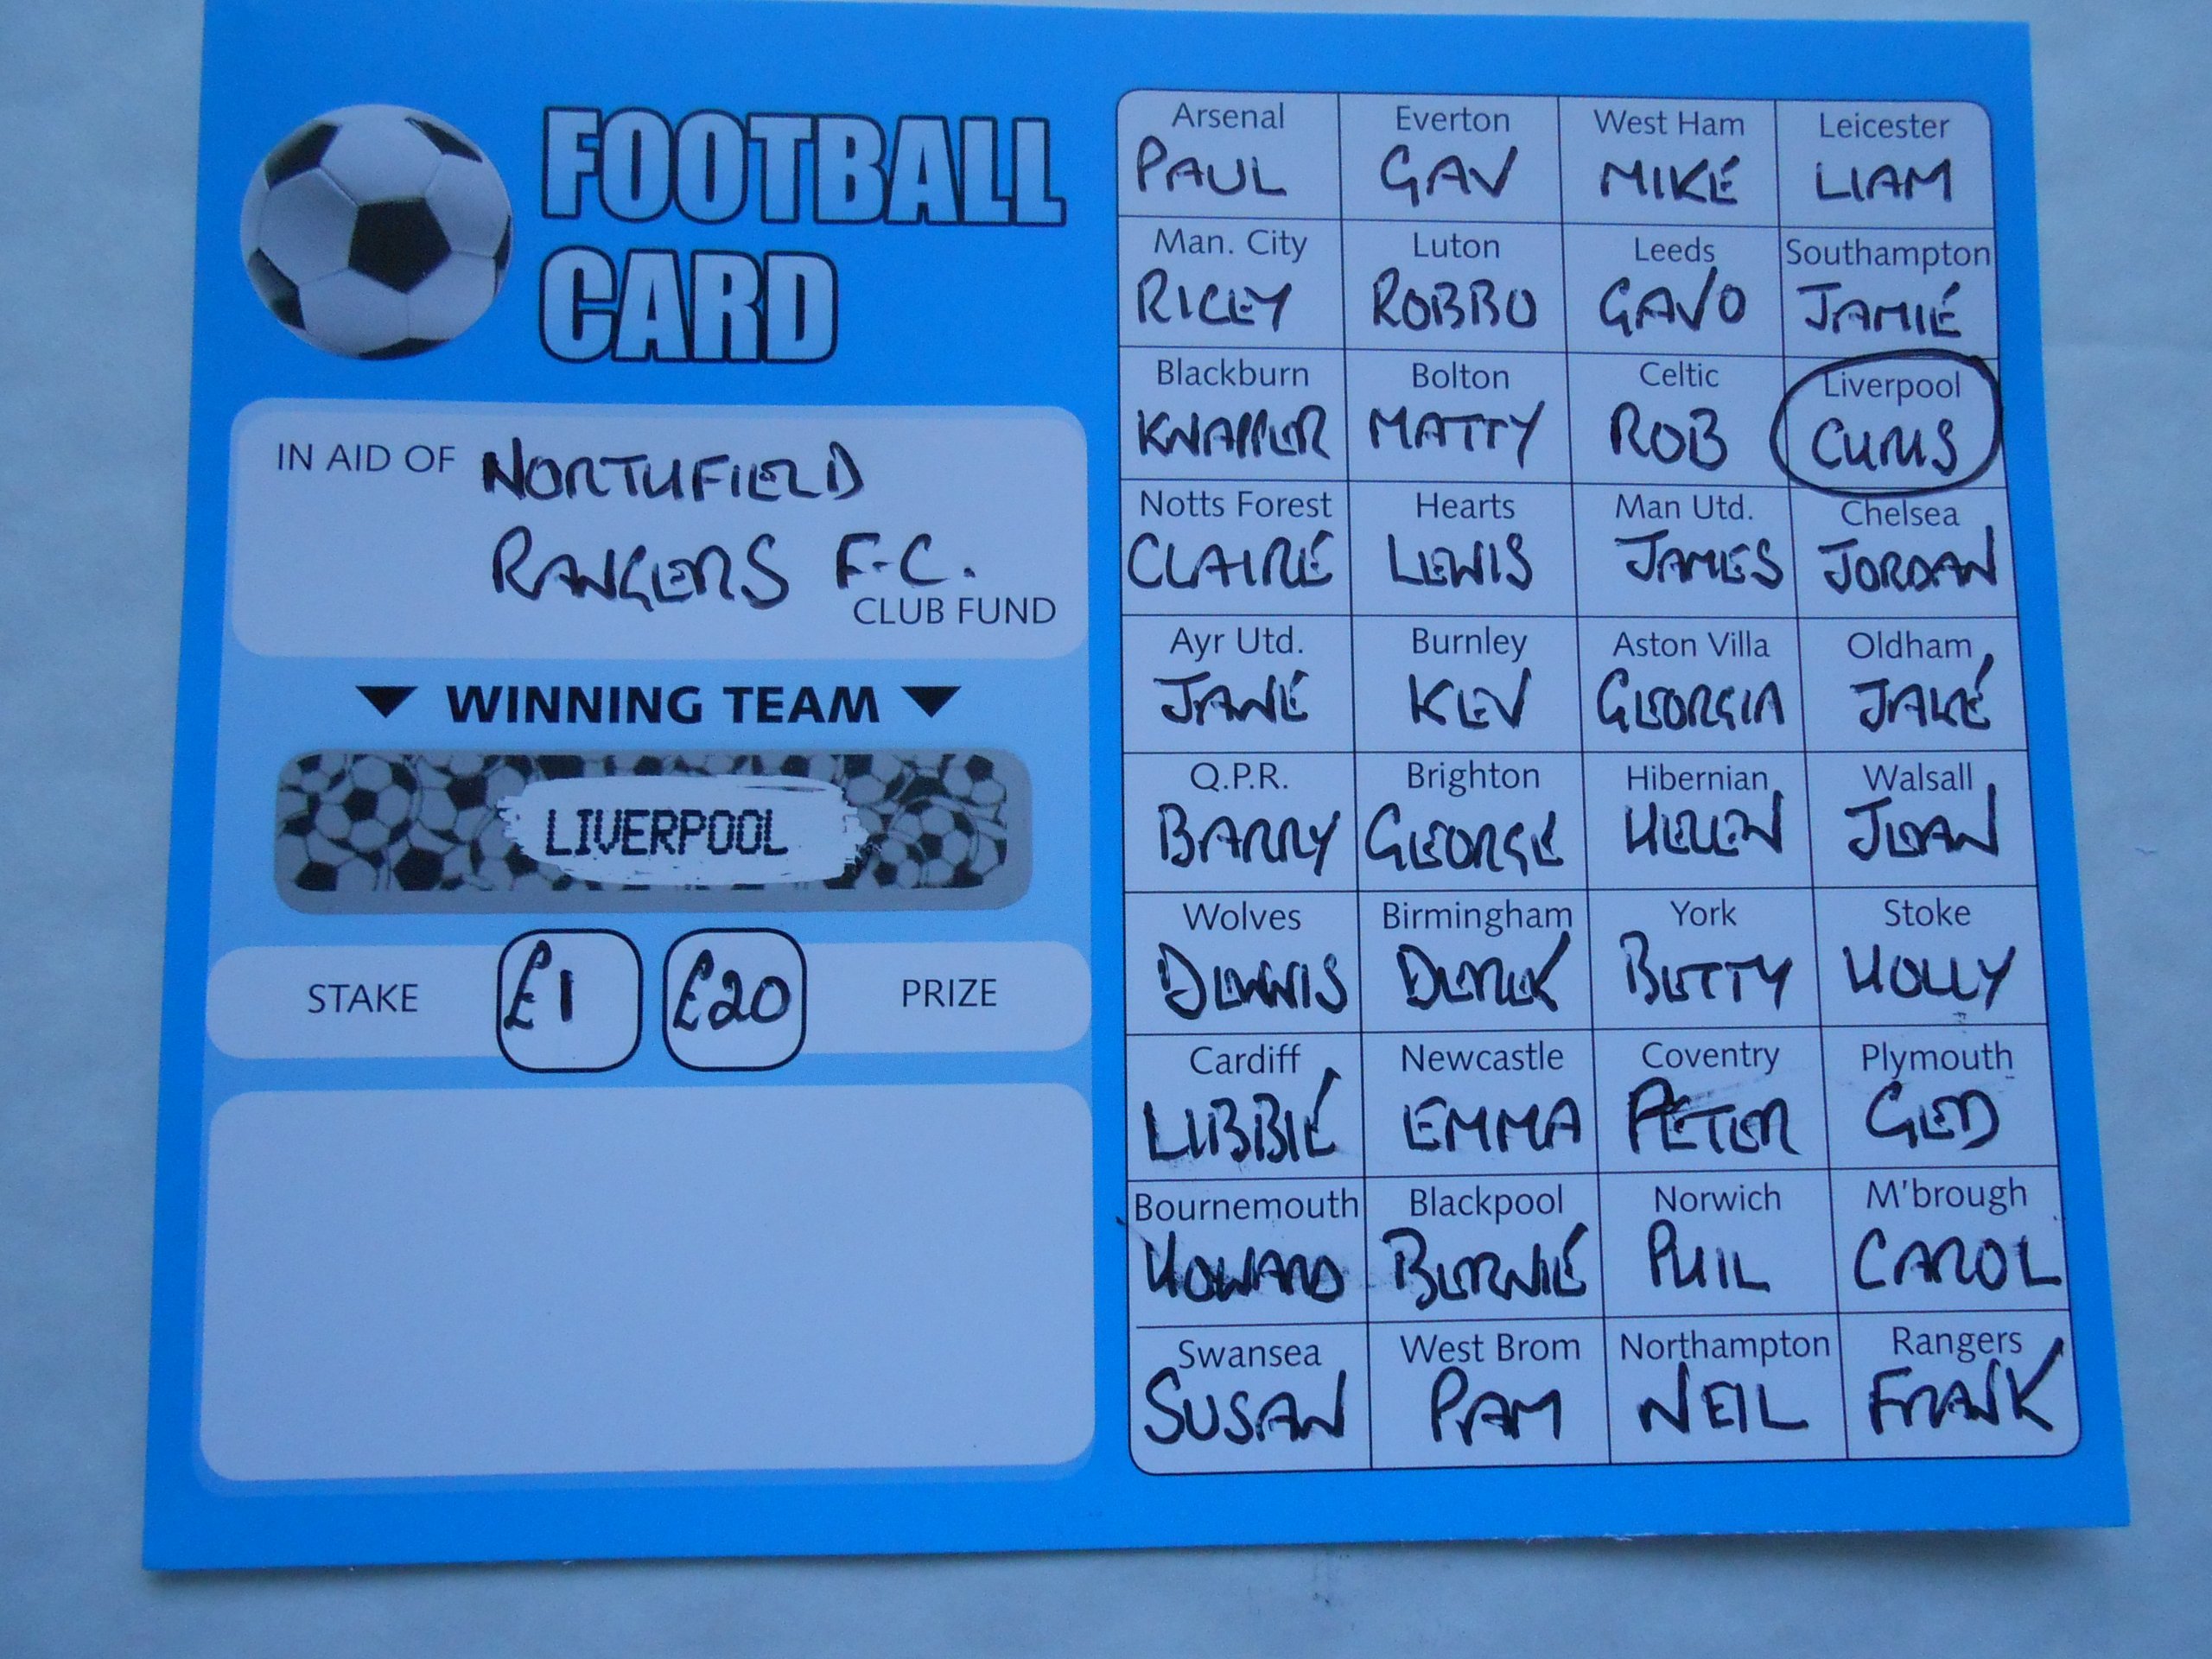 FOOTBALL
CARD
IN AID OF NORTHFIELD
RANGERS F.C.
CLUB FUND
WINNING TEAM
LIVERPOOL
STAKE £1 £20 PRIZE
Arsenal Everton West Ham Leicester
PAUL GAV MIKE LIAM
Man. City Luton Leeds Southampton
RICEY ROBBO GAVO JAMIE
Blackburn Bolton Celtic Liverpool
KNAPPER MATTY ROB CHRIS
Notts Forest Hearts Man Utd. Chelsea
CLAIRE LEWIS JAMES JORDAN
Ayr Utd. Burnley Aston Villa Oldham
JANE KEV GEORGIA JAKE
Q.P.R. Brighton Hibernian Walsall
BARRY GEORGE HELEN JEAN
Wolves Birmingham York Stoke
DENNIS DEREK BETTY HOLLY
Cardiff Newcastle Coventry Plymouth
LIBBIE EMMA PETER GED
Bournemouth Blackpool Norwich M'brough
HOWARD BERNIE PHIL CAROL
Swansea West Brom Northampton Rangers
SUSAN PAM NEIL FRANK